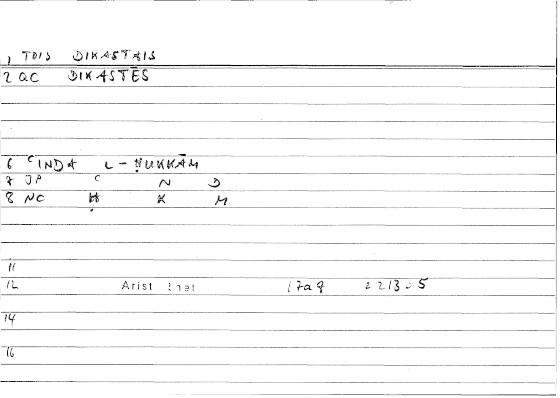 1 TOIS DIKASTAIS
2 QC DIKASTĒS
6 ʿINDA L-ḤUKKĀM
7 JP ʿ N D
8 NC Ḥ K M
11
12 Arist Rhet 17a9 221305
14
16